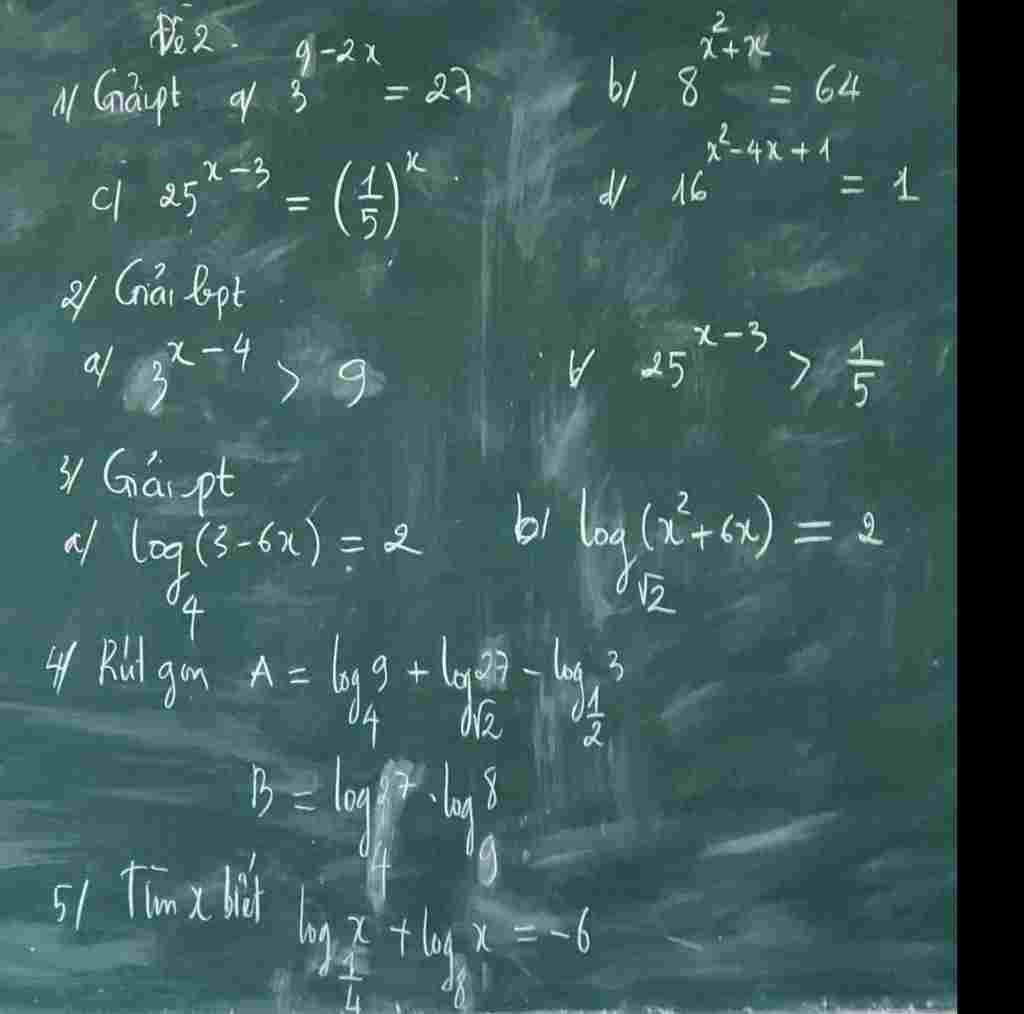 Đề 2.
1/ Giải pt a/ 3^{9-2x} = 27 b/ 8^{x^2+x} = 64
c/ 25^{x-3} = (1/5)^x. d/ 16^{x^2-4x+1} = 1
2/ Giải bpt
a/ 3^{x-4} > 9 b/ 25^{x-3} > 1/5
3/ Giải pt
a/ log_4(3-6x) = 2 b/ log_{√2}(x^2+6x) = 2
4/ Rút gọn A = log_4 9 + log_{√2} 27 - log_{1/2} 3
B = log_4 27 . log_9 8
5/ Tìm x biết log_{1/4} x + log_8 x = -6